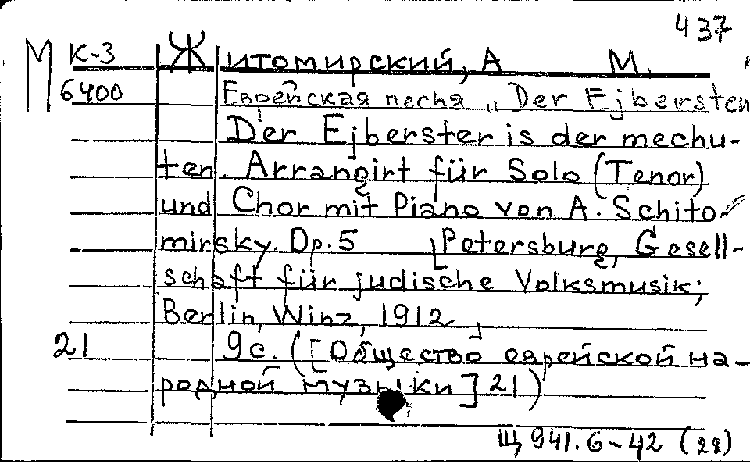 437
М К-3 Житомирский, А М.
6400 Еврейская песня „Der Ejbersten
Der Ejberster is der mechu-
ten. Arrangirt für Solo (Tenor)
und Chor mit Piano von A. Schito-
mirsky. Op. 5 [Petersburg, Gesell-
schaft für judische Volksmusik;
Berlin, Winz, 1912]
21 9с. ([Общество еврейской на-
родной музыки] 21)
Щ 941.6-42 (28)